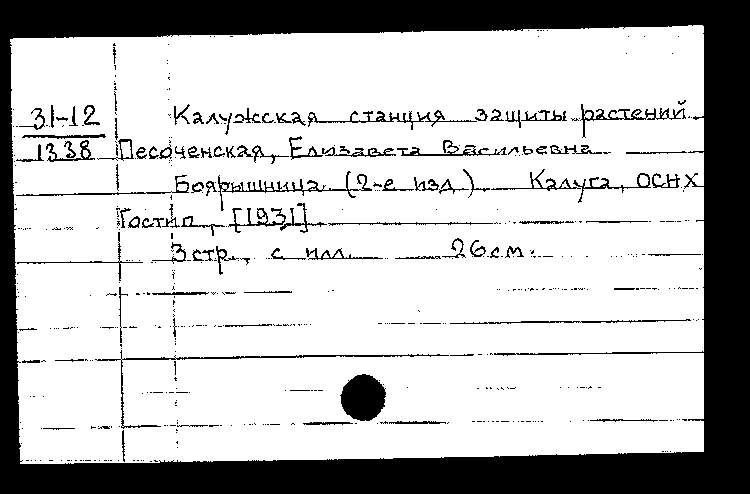 31-12
1338
Калужская станция защиты растений
Песоченская, Елизавета Васильевна
Боярышница. (2-е изд.). Калуга, ОСНХ
Гостип., [1931].
3 стр., с илл. 26 см.